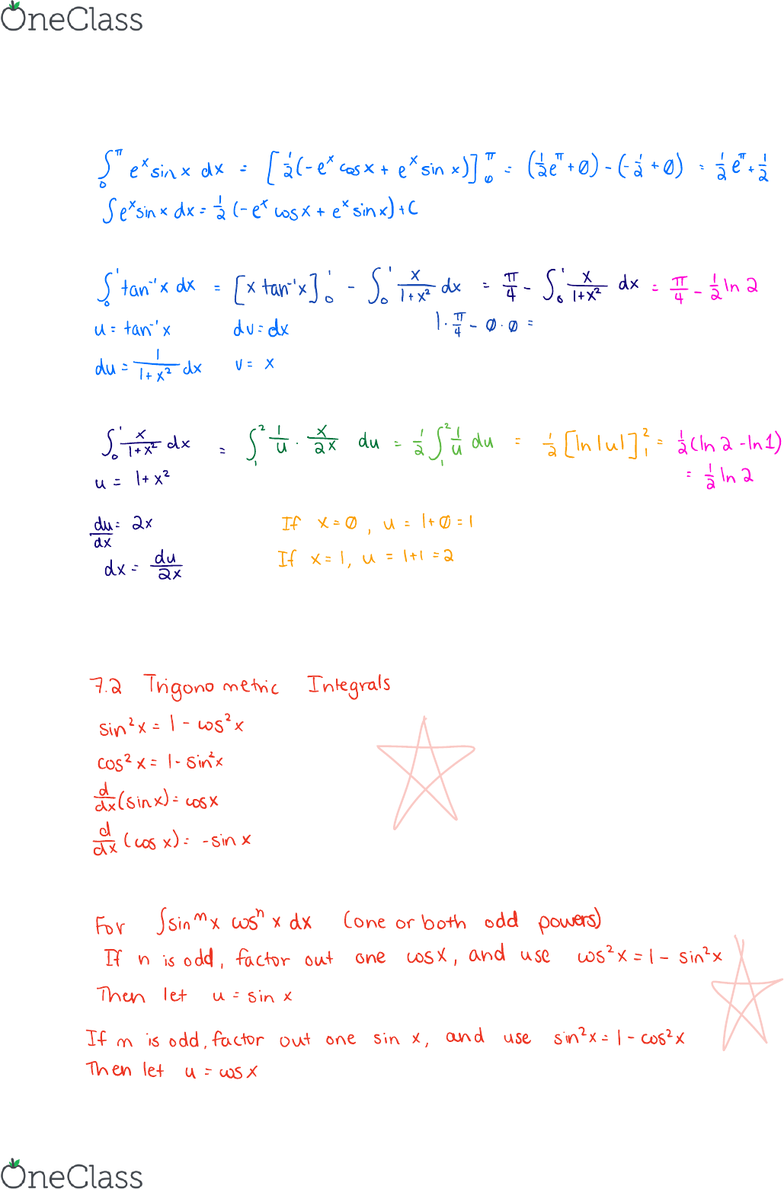 OneClass
∫₀^π eˣ sin x dx = [½(-eˣ cos x + eˣ sin x)]₀^π = (½e^π + 0) - (-½ + 0) = ½e^π + ½
∫eˣ sin x dx = ½(-eˣ cos x + eˣ sin x) + C
∫₀¹ tan⁻¹x dx = [x tan⁻¹x]₀¹ - ∫₀¹ x/(1+x²) dx = π/4 - ∫₀¹ x/(1+x²) dx = π/4 - ½ ln 2
u = tan⁻¹x dv = dx 1·π/4 - 0·0 =
du = 1/(1+x²) dx v = x
∫₀¹ x/(1+x²) dx = ∫₁² 1/u · x/2x du = ½ ∫₁² 1/u du = ½ [ln|u|]₁² = ½(ln 2 - ln 1)
u = 1+x² = ½ ln 2
du/dx = 2x If x=0, u = 1+0 = 1
dx = du/2x If x=1, u = 1+1 = 2
7.2 Trigonometric Integrals
sin²x = 1 - cos²x
cos²x = 1 - sin²x
d/dx (sin x) = cos x
d/dx (cos x) = -sin x
For ∫sinᵐx cosⁿx dx (one or both odd powers)
If n is odd, factor out one cosx, and use cos²x = 1 - sin²x
Then let u = sin x
If m is odd, factor out one sin x, and use sin²x = 1 - cos²x
Then let u = cos x
OneClass